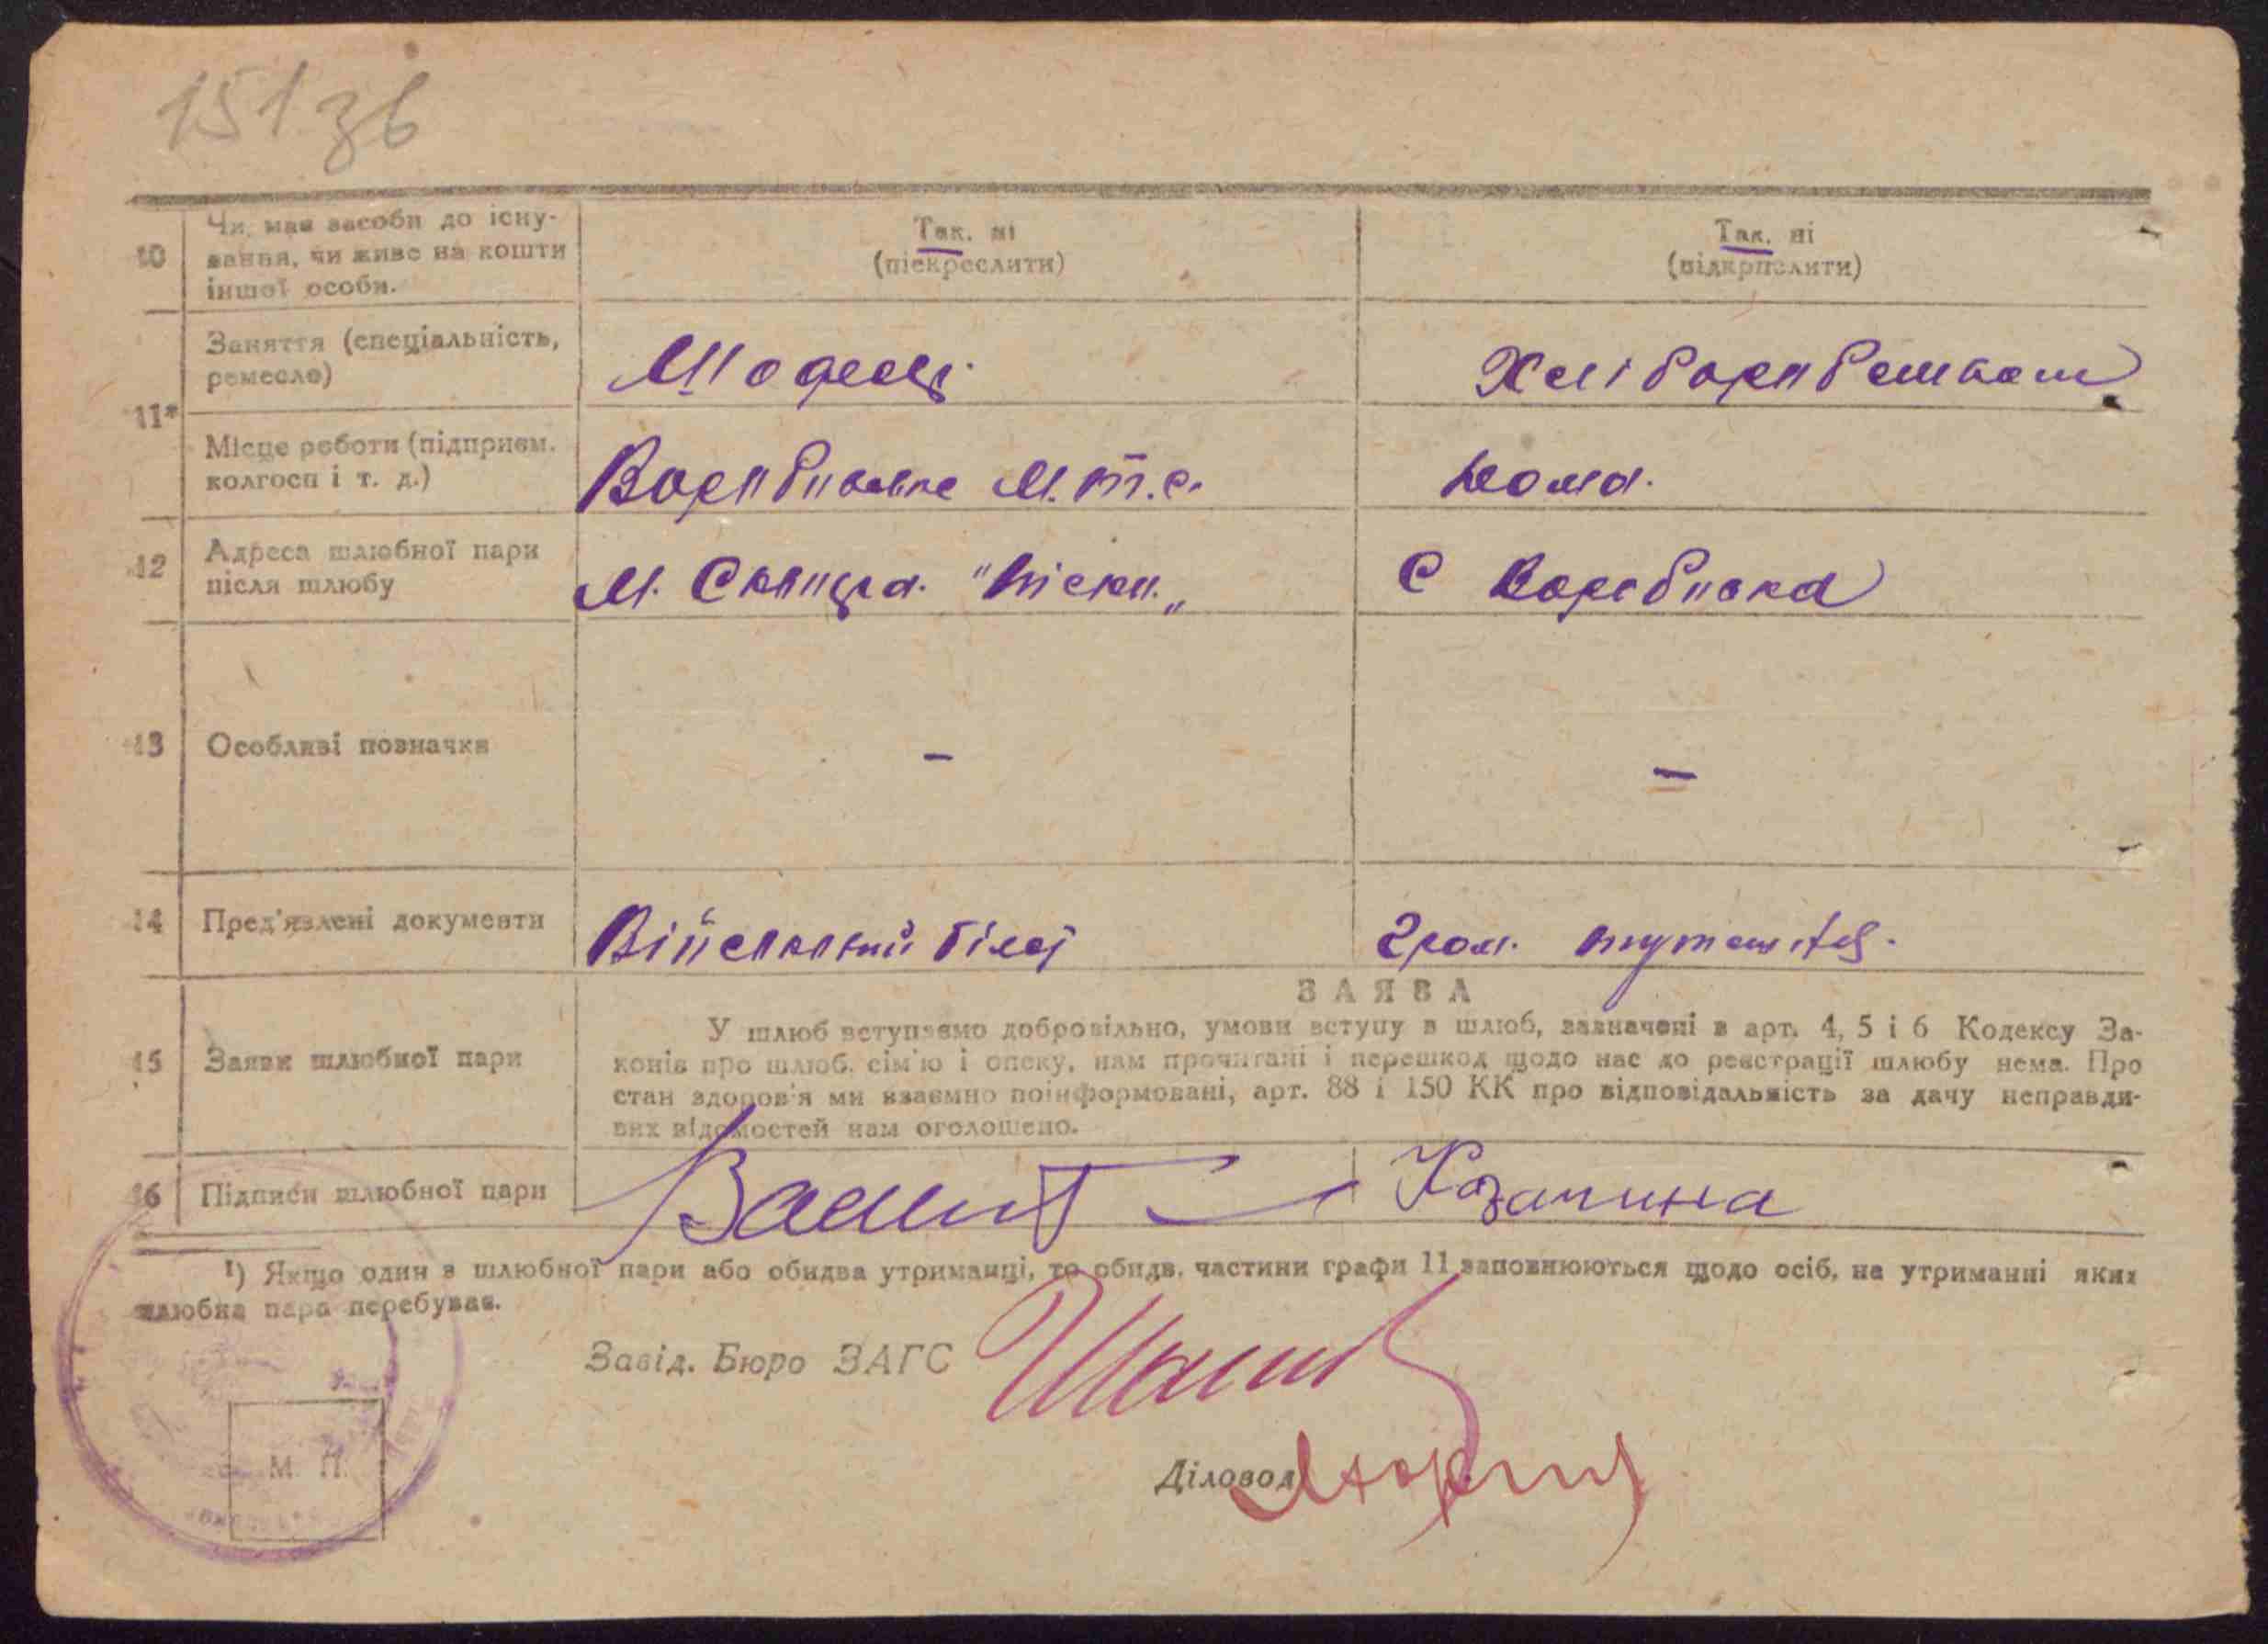 151 зв
10
Чи має засоби до існу-
вання, чи живе на кошти
іншої особи.
Так. ні
(піекреслити)
Так. ні
(підкрпслити)
11*
Заняття (спеціальність,
ремесло)
Шофеер
Місце роботи (підприєм.
колгосп і т. д.)
М.Т.С.
дома.
12
Адреса шлюбної пари
після шлюбу
М. Сквира. "Піски"
С
13
Особливі позначки
-
-
14
Пред'явлені документи
Військовий білет
Гром.
15
Заяви шлюбної пари
ЗАЯВА
У шлюб вступаємо добровільно, умови вступу в шлюб, зазначені в арт. 4, 5 і 6 Кодексу За-
конів про шлюб, сім'ю і опеку, нам прочитані і перешкод щодо нас до реєстрації шлюбу нема. Про
стан здоров'я ми взаємно поінформовані, арт. 88 і 150 КК про відповідальність за дачу неправди-
вих відомостей нам оголошено.
16
Підписи шлюбної пари
Казачина
1) Якщо один з шлюбної пари або обидва утриманці, то обидв. частини графи 11 заповнюються щодо осіб, на утриманні яких
шлюбна пара перебуває.
Завід. Бюро ЗАГС
Діловод
М. П.